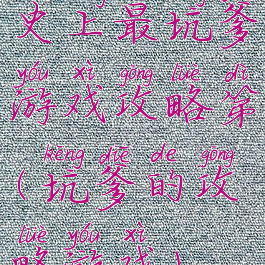 史上最坑爹
yóu xì gōng lüè dì
游戏攻略第
kēng diē de gōng
(坑爹的攻
lüè yóu xì
略游戏)